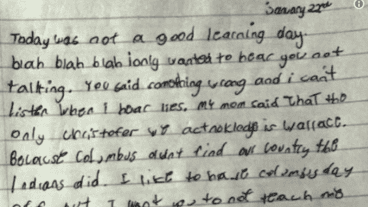 January 22nd
Today was not a good learning day.
blah blah blah i only wanted to hear you not
talking. You said comthing wrong and i can't
listen when I hear lies. My mom said That the
only christofer we acknoklodg is wallace.
Because Columbus didnt find our country the
Indians did. I like to have columbus day
I want you to not teach me